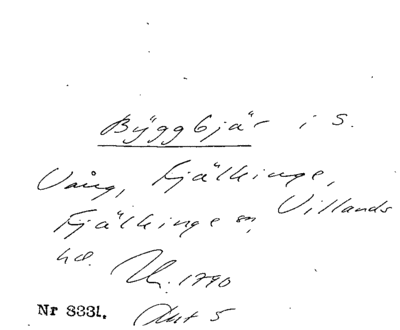 Byggbjär i S.
Vång, Fjälkinge,
Fjälkinge sn, Villands
hd. Lm. 1790
Nr 8331. Akt 5